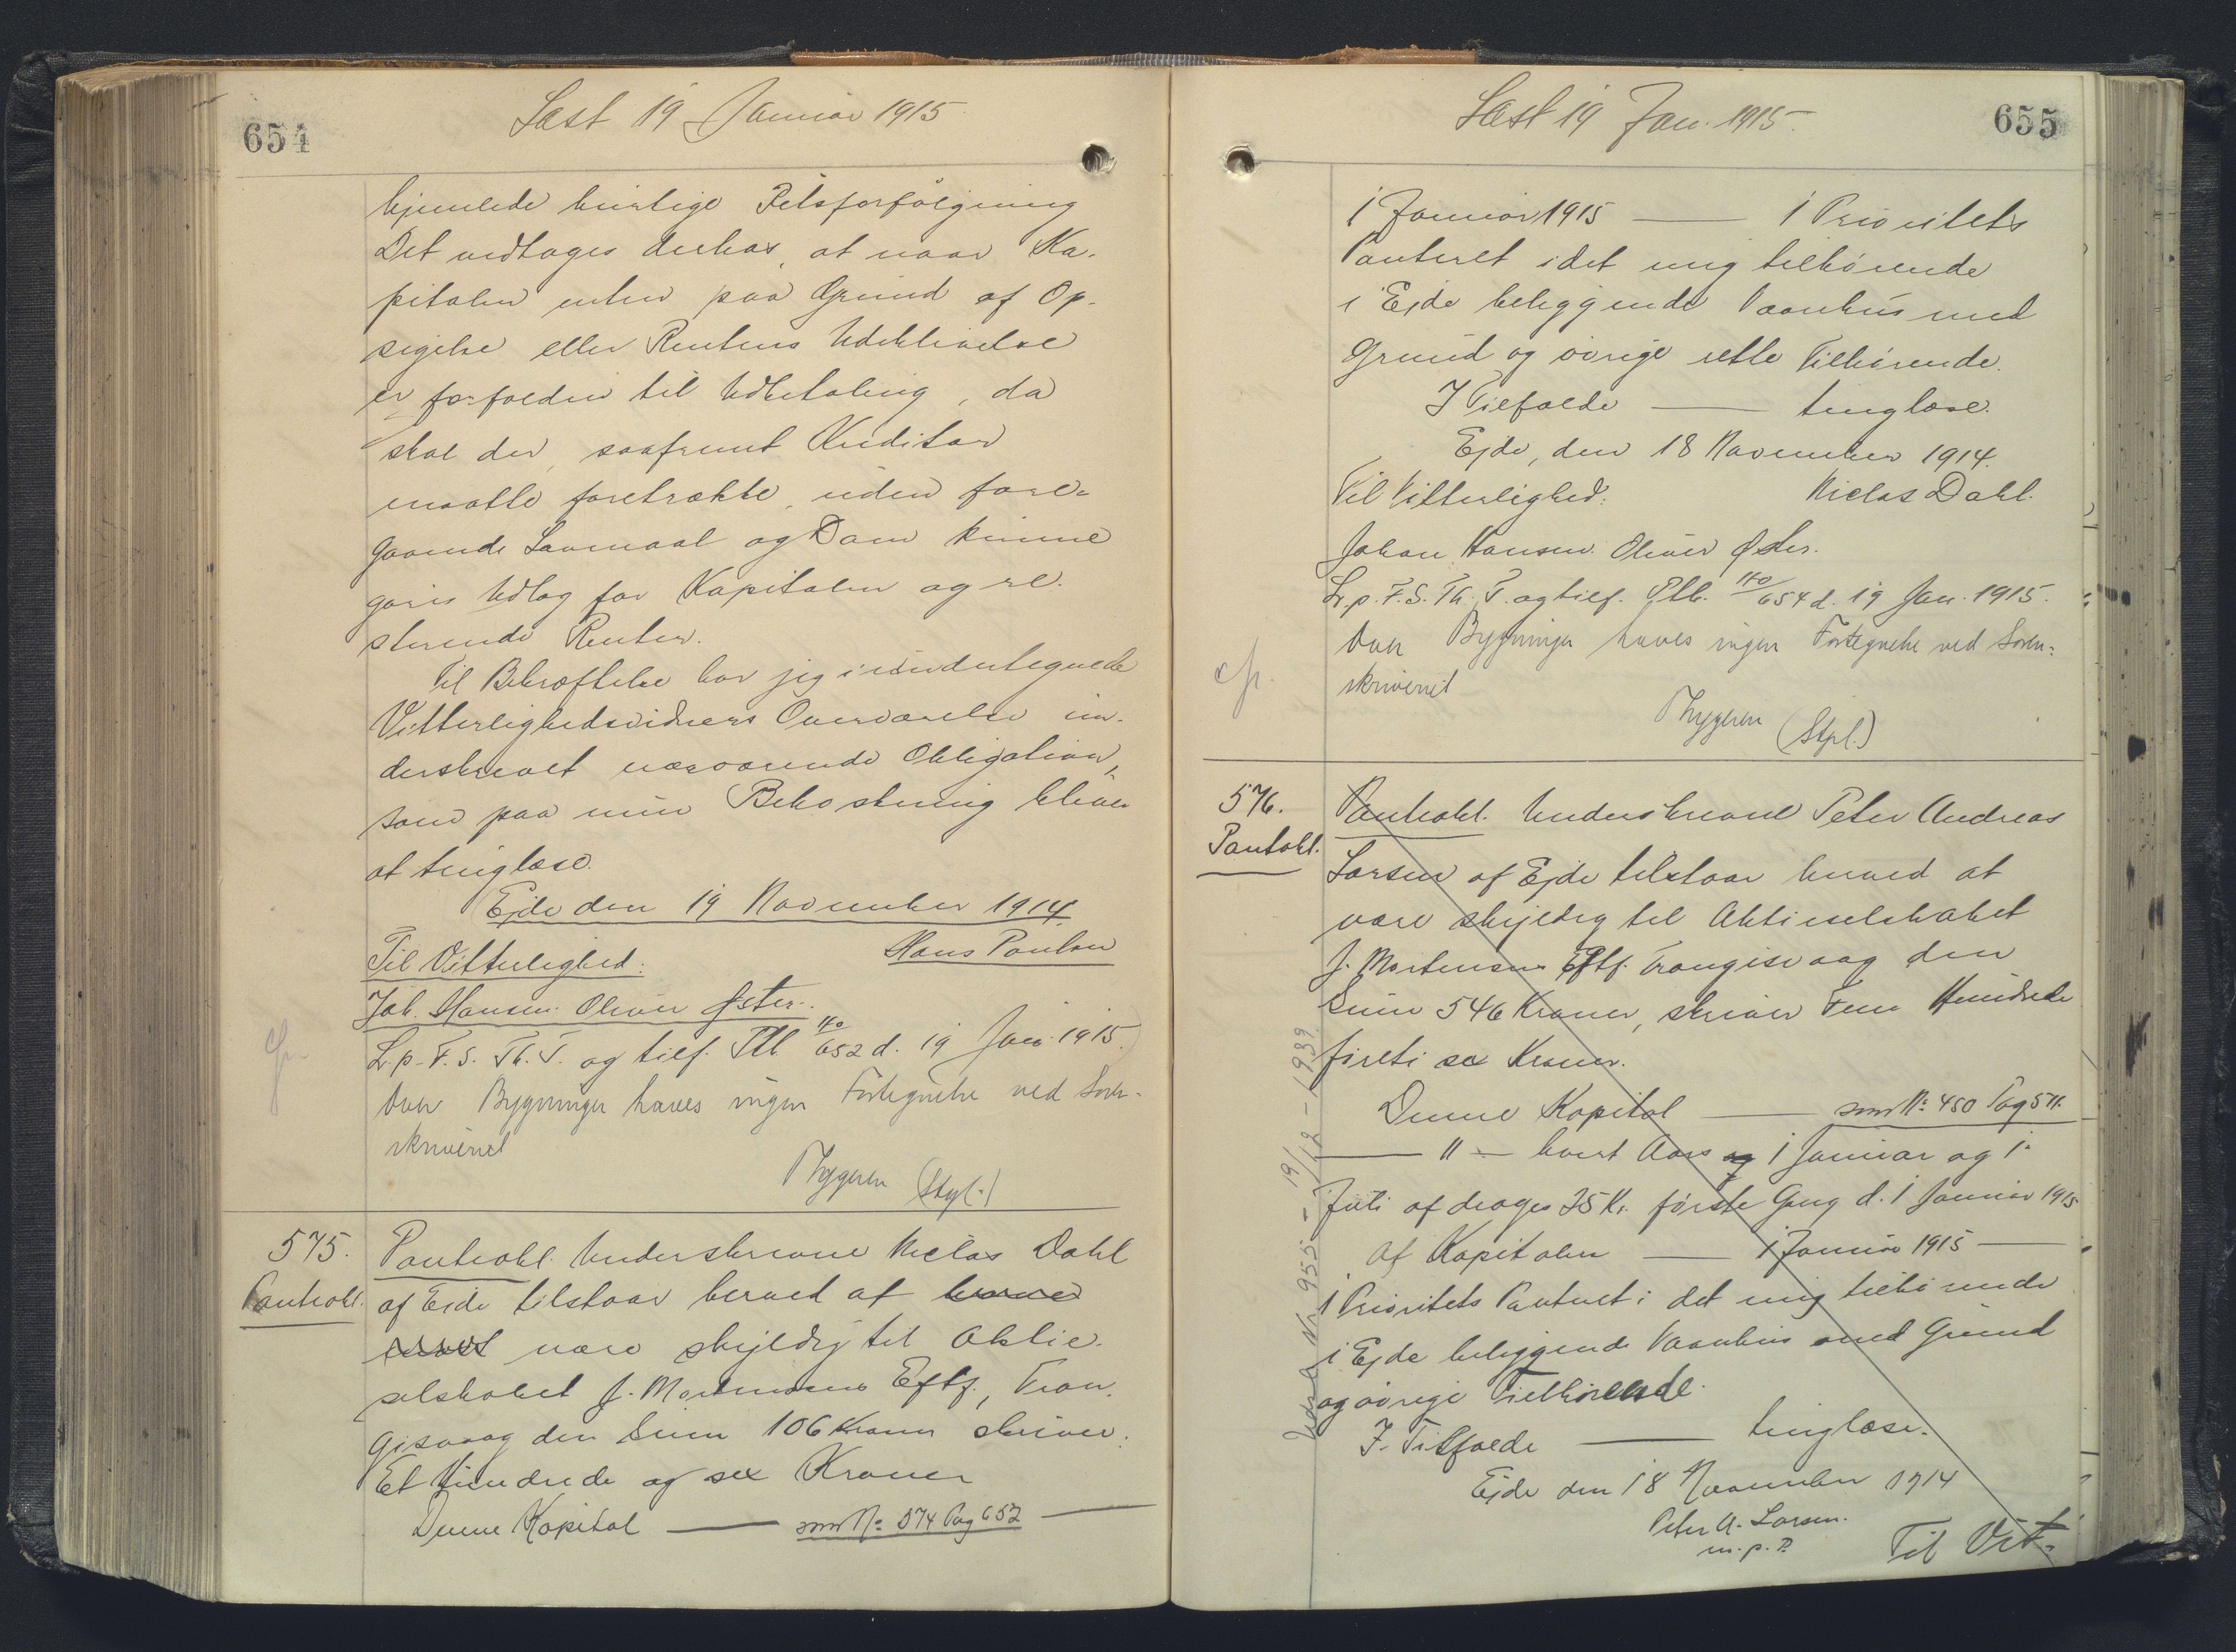 654
Læst 19 Januar 1915
hjemlede hurtige Retsforfölgning
Det vedtages derhos, at naar Ka-
pitalen enten paa Grund af Op-
sigelse eller Rentens Udeblivelse
er forfalden til Udbetaling, da
skal der, saafremt Kreditor
maatte foretrække, uden fore-
gaaende Lavmaal og Dom kunne
gøres Udlæg for Kapitalen og re-
sterende Renter.
Til Bekræftelse har jeg i undertegnede
Vitterlighedsvidners Overværelse un-
derskrevet nærværende Obligation,
som paa min Bekostning bliver
at tinglæse.
Ejde den 19 November 1914.
Til Vitterlighed:
Hans Poulsen
Joh. Hansen. Oliver Øster.
L. p. F. S. Th. T. og tilf. Ptb. 652 d. 19 Jan. 1915.
Over Bygninger haves ingen Fortegnelse ved Soren-
skriveriet
Thygesen (Stpl.)
cfr.
575.
Pantobl.
Pantobl. Underskrevne Niclas Dahl
af Ejde tilstaar herved at
være skyldig til Aktie-
selskabet J. Mortensens Eftf., Tran-
gisvaag den Sum 106 Kroner skriver:
Et Hundrede og sex Kroner
Denne Kapital —— som No 574 Pag 652 ——
Læst 19 Jan. 1915.
655
1 Januar 1915 —— 1 Prioritets
Panteret i det mig tilhørende
i Ejde beliggende Vaanhus med
Grund og övrige rette Tilhørende.
I Tilfælde —— tinglæse.
Ejde, den 18 November 1914.
Til Vitterlighed:
Niclas Dahl.
Johan Hansen. Oliver Øster.
L. p. F. S. Th. T. og tilf. Ptb. 654 d. 19 Jan. 1915.
Over Bygninger haves ingen Fortegnelse ved Soren-
skriveriet
Thygesen (Stpl.)
cfr.
576.
Pantobl.
Pantobl. Underskrevne Peter Andreas
Larsen af Ejde tilstaar herved at
være skyldig til Aktieselskabet
J. Mortensens Eftf. Trangisvaag den
Sum 546 Kroner, skriver Fem Hundrede
fireti sex Kroner.
Denne Kapital —— som No 450 Pag 511.
—— " — hvert Aars og 1 Januar og 1.
Juli afdrages 25 Kr. første Gang d. 1 Januar 1915
Af Kapitalen —— 1 Januar 1915 ——
1 Prioritets Panteret i det mig tilhørende
i Ejde beliggende Vaanhus med Grund
og övrige Tilhörende.
I Tilfælde —— tinglæse.
Ejde den 18 November 1914
Peter A. Larsen.
m. p. P.
Til Vit-
Nr 955 - 19/12 - 1939